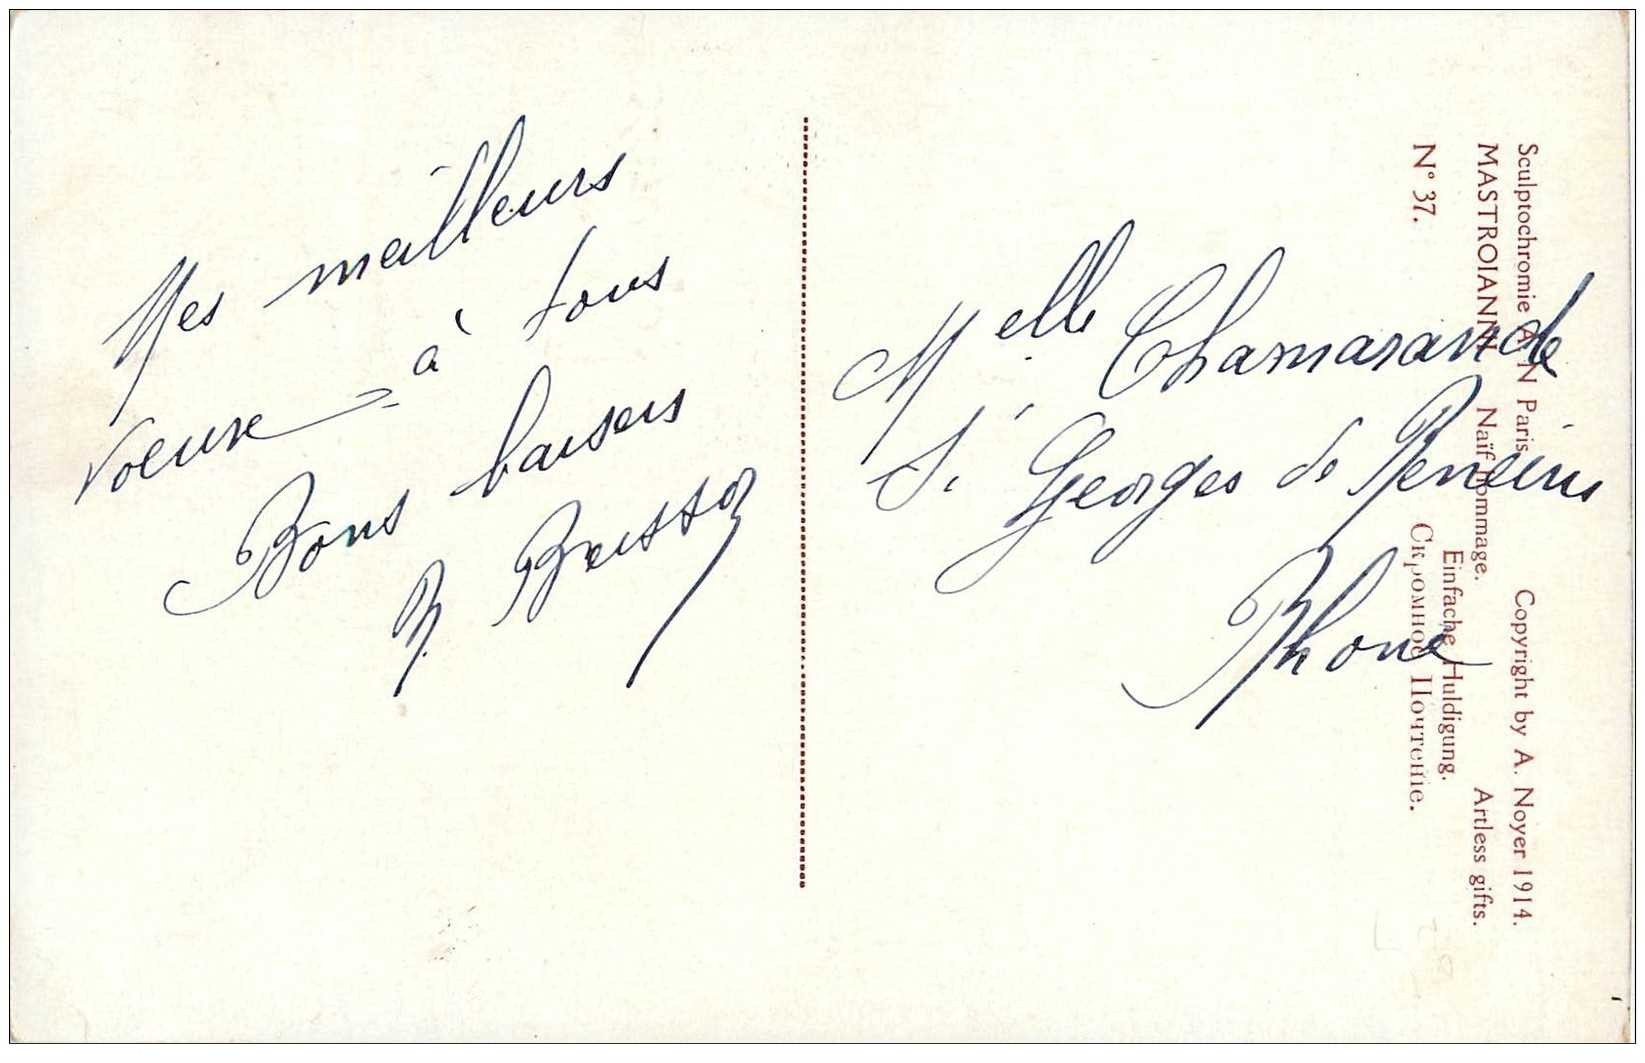 Mes meilleurs
voeux à tous
Bons baisers
Melle Chamarande
St Georges de Reneins
Rhone
Sculptochromie A. N Paris. Copyright by A. Noyer 1914.
MASTROIANNI Naïf hommage. Artless gifts.
Einfache Huldigung.
N° 37. Скромное Почтение.